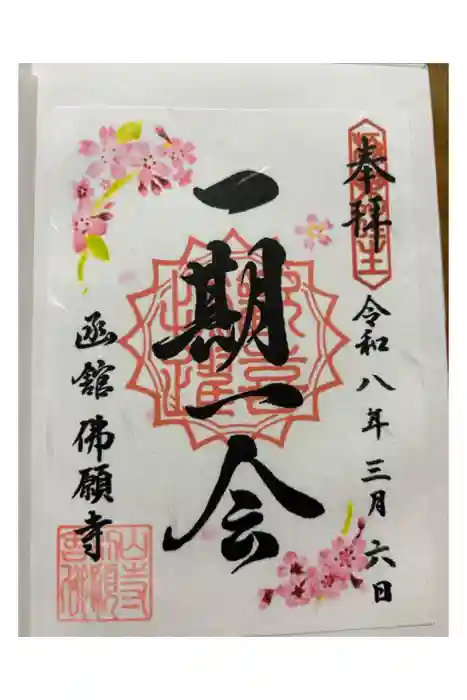 奉拝
令和八年三月六日
一期一会
函舘 佛願寺